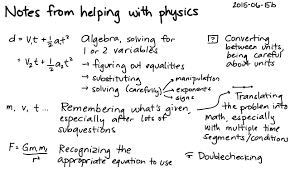 Notes from helping with physics
2015-06-15b
d = V₁t + ½a₁t²
= V₂t + ½a₂t²
Algebra, solving for
1 or 2 variables
→ figuring out equalities
→ substituting
→ solving (carefully)
→ manipulation
→ exponents
→ signs
? Converting
between units,
being careful
about units
m, v, t...
Remembering what's given,
especially after lots of
subquestions
Translating
the problem into
math, especially
with multiple time
segments/conditions
F = Gm₁m₂
r²
Recognizing the
appropriate equation to use
Doublechecking